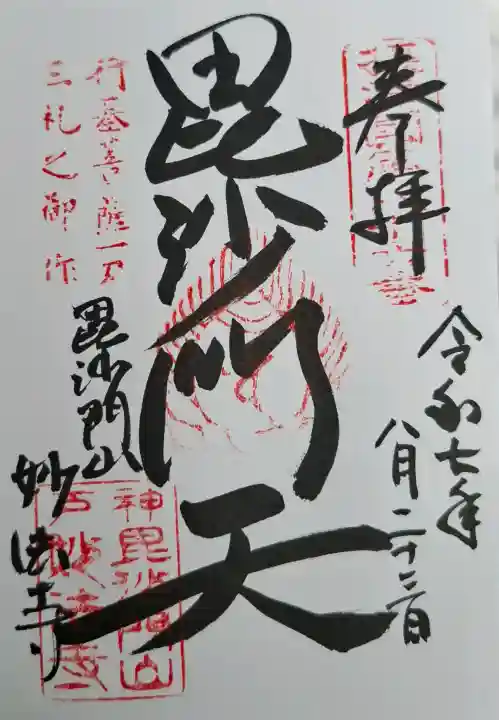 奉拝
令和七年
八月二十二日
毘沙門天
行基菩薩一刀
三礼之御作
毘沙門山
妙法寺